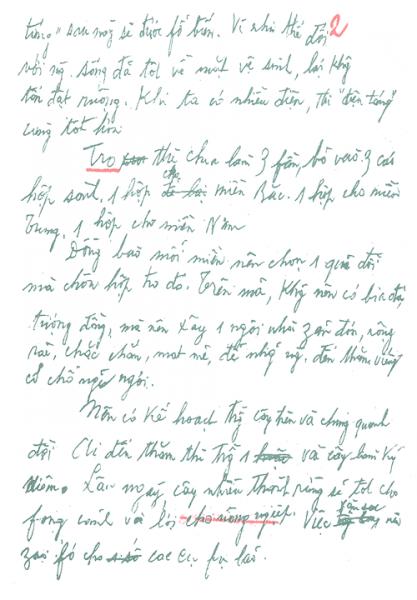 2
táng" sau này sẽ được fổ biến. Vì như thế đối
với ng sống đã tốt về mặt vệ sinh, lại khg
tốn đất ruộng. Khi ta có nhiều điện, thì "điện táng"
càng tốt hơn
Tro thì chia làm 3 fần, bỏ vào 3 cái
hộp sành, 1 hộp cho miền Bắc. 1 hộp cho miền
Trung, 1 hộp cho miền Nam
Đồng bào mỗi miền nên chọn 1 quả đồi
mà chôn hộp tro đó. Trên mả, khg nên có bia đá,
tượng đồng, mà nên xây 1 ngôi nhà zản đơn, rộng
rãi, chắc chắn, mát mẻ, để nhg ng. đến thăm viếng
có chỗ nghỉ ngơi.
Nên có kế hoạch trg cây trên và chung quanh
đồi Ai đến thăm thì trg 1 vài cây làm kỷ
niệm. Lâu ngày cây nhiều thành rừng sẽ tốt cho
fong cảnh và lợi cho nông nghiệp. Việc săn sóc
zao fó cho các cụ fụ lão